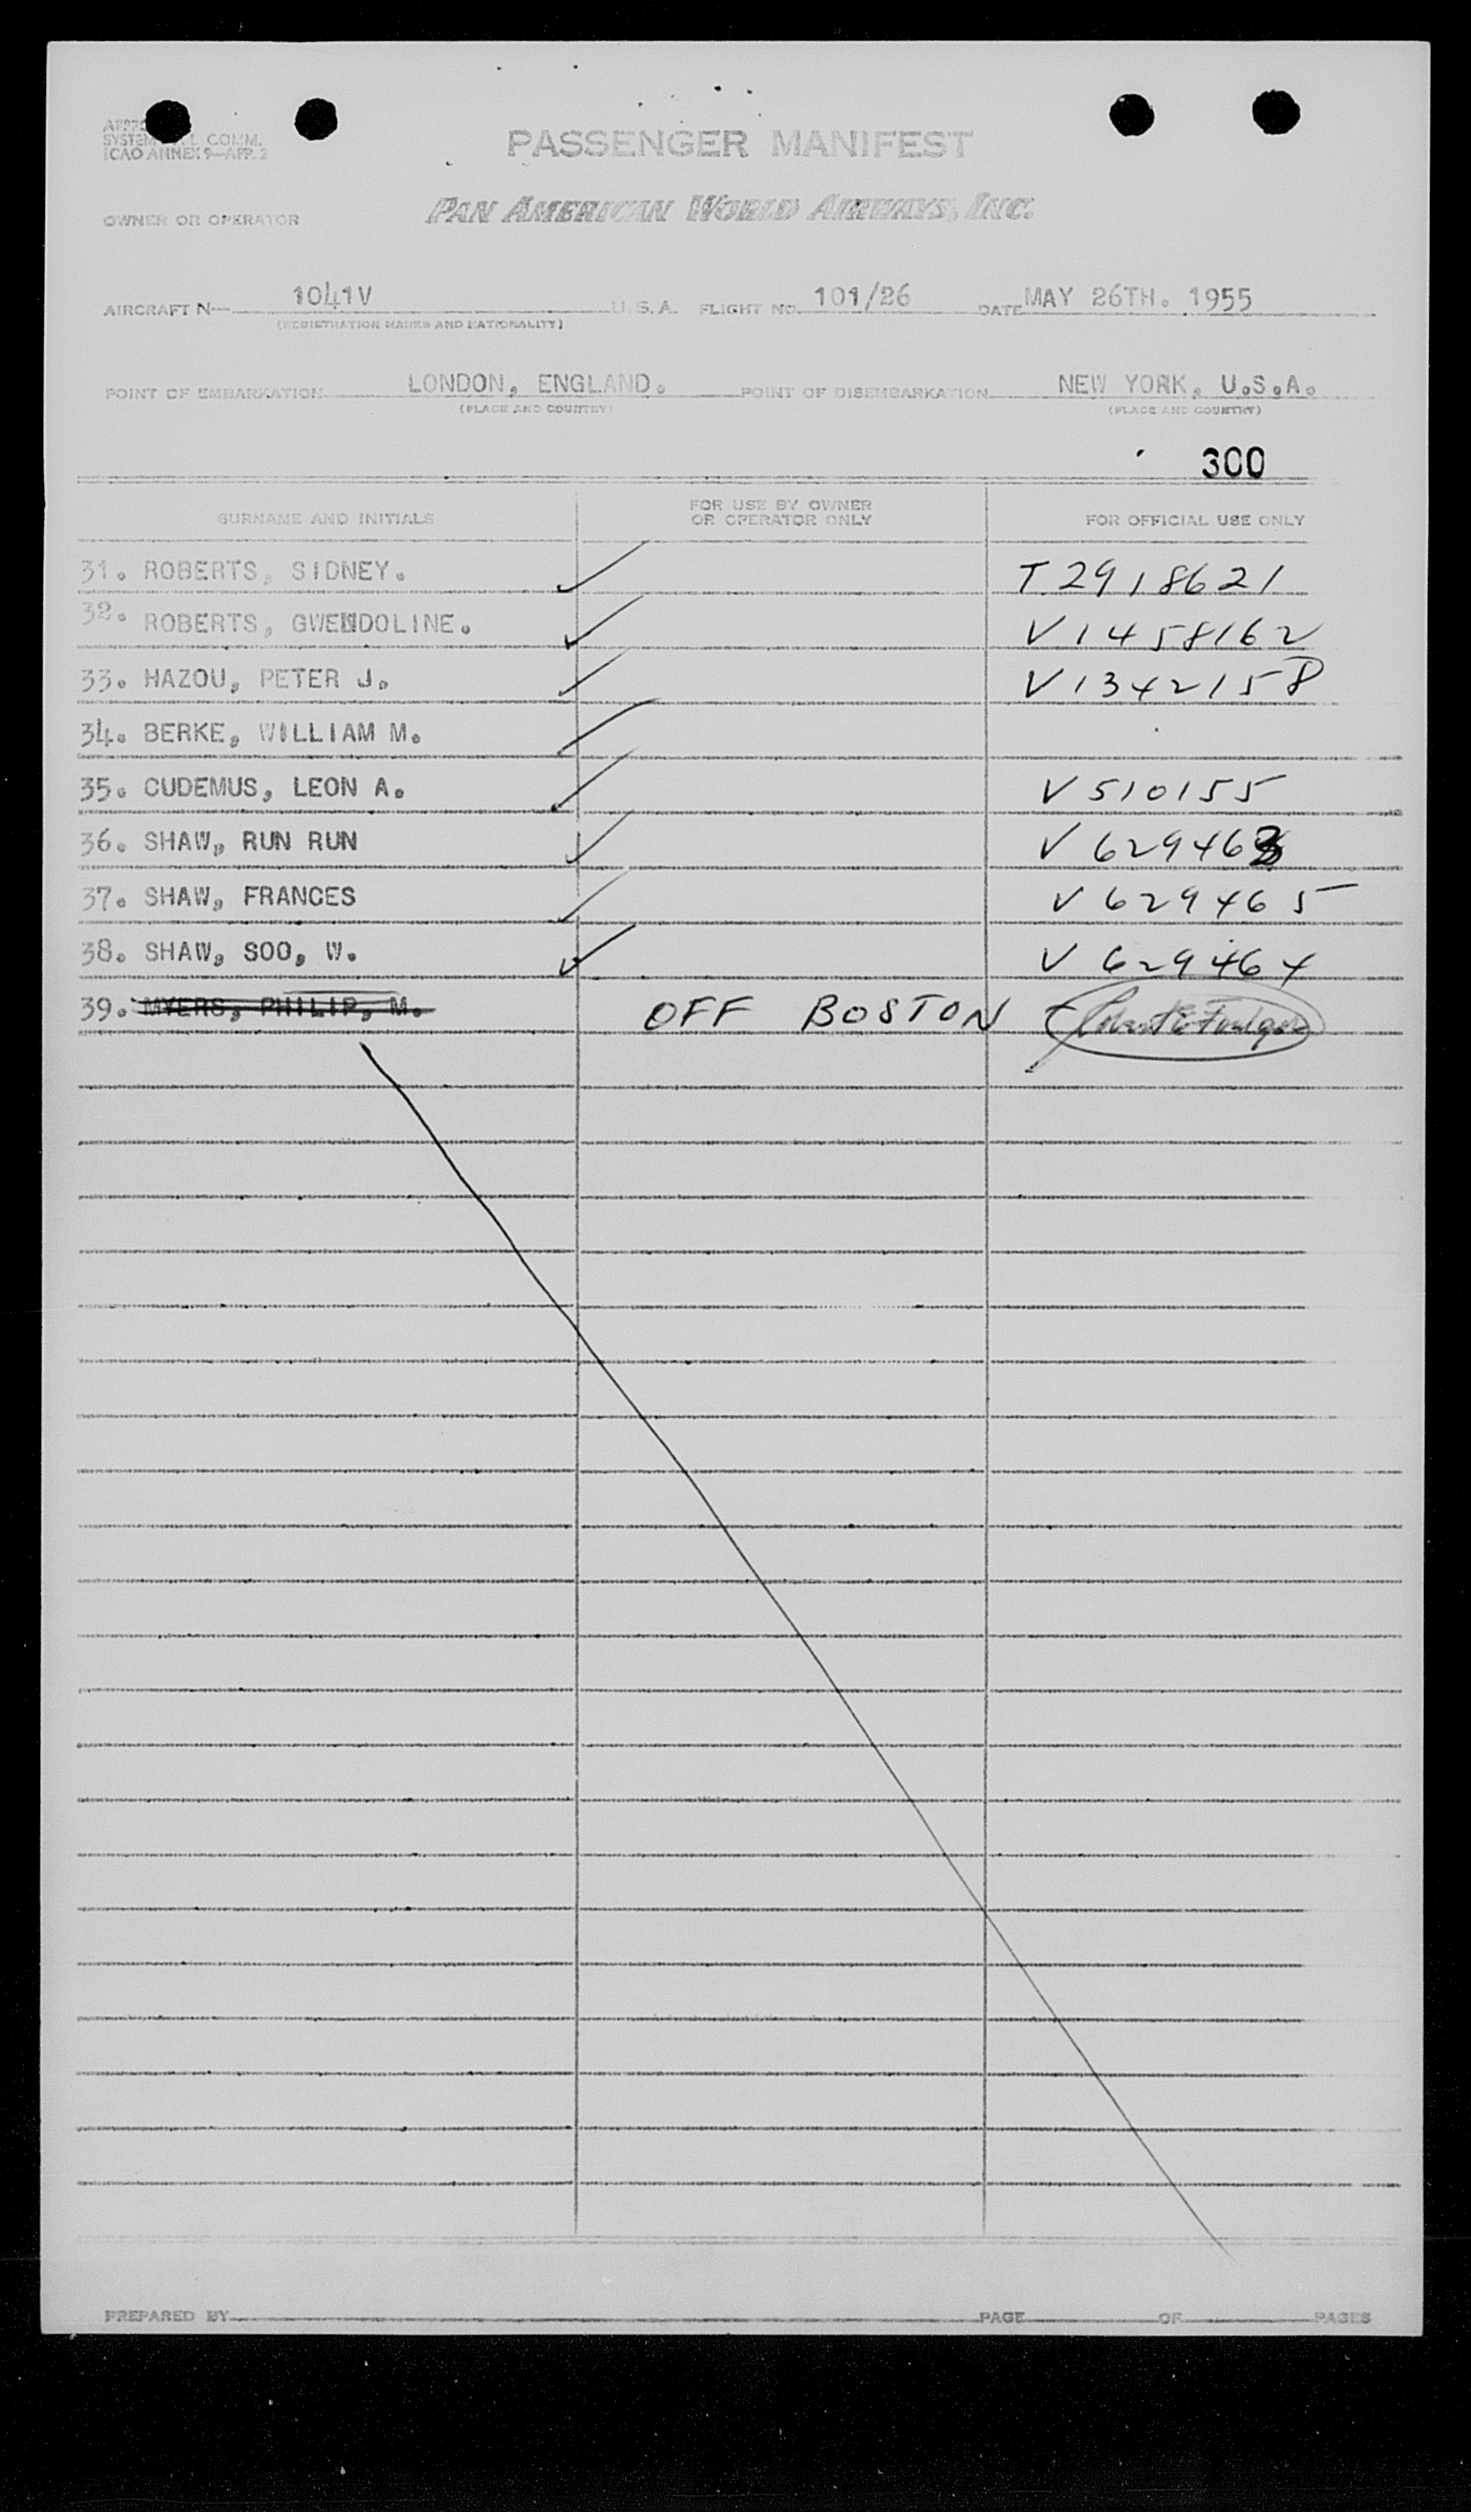 PASSENGER MANIFEST
SYSTEM COMM.
ICAO ANNEX 9—APP. 2
OWNER OR OPERATOR PAN AMERICAN WORLD AIRWAYS, INC.
AIRCRAFT N— 1041V U.S.A. FLIGHT NO. 101/26 DATE MAY 26TH. 1955
(REGISTRATION MARKS AND NATIONALITY)
POINT OF EMBARKATION LONDON, ENGLAND. POINT OF DISEMBARKATION NEW YORK, U.S.A.
(PLACE AND COUNTRY) (PLACE AND COUNTRY)
300
SURNAME AND INITIALS FOR USE BY OWNER OR OPERATOR ONLY FOR OFFICIAL USE ONLY
31. ROBERTS, SIDNEY. ✓ T 2918621
32. ROBERTS, GWENDOLINE. ✓ V1458162
33. HAZOU, PETER J. ✓ V1342158
34. BERKE, WILLIAM M. ✓
35. CUDEMUS, LEON A. ✓ V510155
36. SHAW, RUN RUN ✓ V629463
37. SHAW, FRANCES ✓ V629465
38. SHAW, SOO, W. ✓ V629464
39. MYERS, PHILIP, M. OFF BOSTON
PREPARED BY PAGE OF PAGES